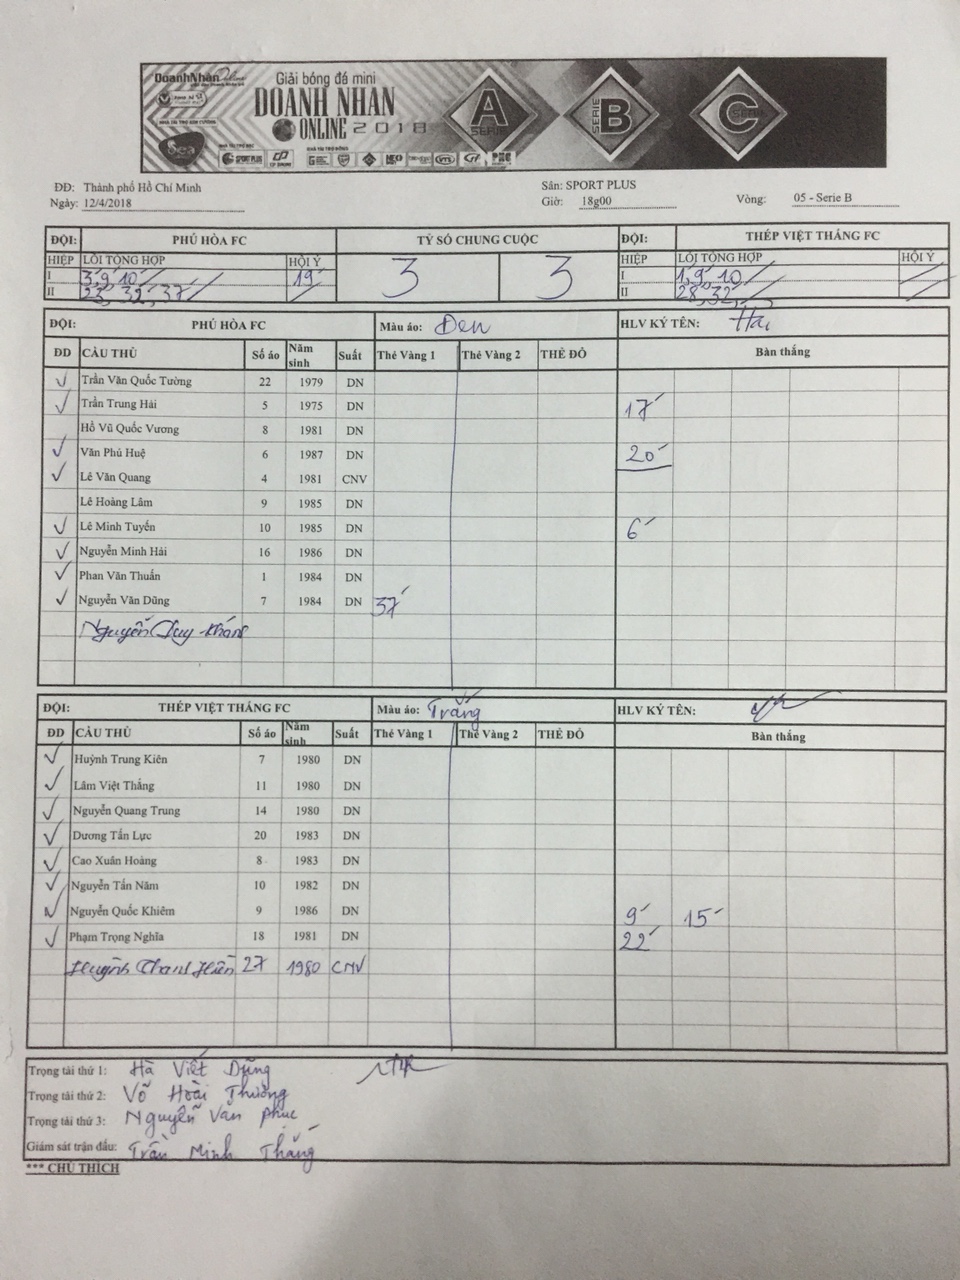 DoanhNhanOnline
Giải bóng đá mini
DOANH NHAN
ONLINE 2018
A SERIE
SERIE B
C SERIE
NHÀ TÀI TRỢ KIM CƯƠNG
Sea
SPORT PLUS
ĐĐ: Thành phố Hồ Chí Minh Sân: SPORT PLUS
Ngày: 12/4/2018 Giờ: 18g00 Vòng: 05 - Serie B
ĐỘI: PHÚ HÒA FC TỶ SỐ CHUNG CUỘC ĐỘI: THÉP VIỆT THẮNG FC
HIỆP LỖI TỔNG HỢP HỘI Ý 3 3 HIỆP LỖI TỔNG HỢP HỘI Ý
I 3, 9, 10 19 I 1, 9, 10
II 23, 32, 37 II 28, 32
ĐỘI: PHÚ HÒA FC Màu áo: Đen HLV KÝ TÊN: Hải
ĐD CẦU THỦ Số áo Năm sinh Suất Thẻ Vàng 1 Thẻ Vàng 2 THẺ ĐỎ Bàn thắng
✓ Trần Văn Quốc Tường 22 1979 DN
✓ Trần Trung Hải 5 1975 DN 17'
Hồ Vũ Quốc Vương 8 1981 DN
✓ Văn Phú Huệ 6 1987 DN 20'
✓ Lê Văn Quang 4 1981 CNV
Lê Hoàng Lâm 9 1985 DN
✓ Lê Minh Tuyến 10 1985 DN 6'
✓ Nguyễn Minh Hải 16 1986 DN
✓ Phan Văn Thuấn 1 1984 DN
✓ Nguyễn Văn Dũng 7 1984 DN 37'
Nguyễn Duy Khánh
ĐỘI: THÉP VIỆT THẮNG FC Màu áo: Trắng HLV KÝ TÊN:
ĐD CẦU THỦ Số áo Năm sinh Suất Thẻ Vàng 1 Thẻ Vàng 2 THẺ ĐỎ Bàn thắng
✓ Huỳnh Trung Kiên 7 1980 DN
✓ Lâm Việt Thắng 11 1980 DN
✓ Nguyễn Quang Trung 14 1980 DN
✓ Dương Tấn Lực 20 1983 DN
✓ Cao Xuân Hoàng 8 1983 DN
✓ Nguyễn Tấn Năm 10 1982 DN
✓ Nguyễn Quốc Khiêm 9 1986 DN 9' 15'
✓ Phạm Trọng Nghĩa 18 1981 DN 22'
Huỳnh Thanh Hiền 27 1980 CNV
Trọng tài thứ 1: Hà Viết Dũng
Trọng tài thứ 2: Võ Hoài Thương
Trọng tài thứ 3: Nguyễn Văn Phục
Giám sát trận đấu: Trần Minh Thắng
*** CHÚ THÍCH